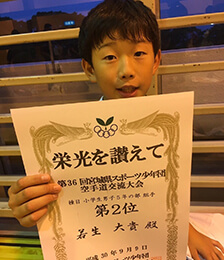 栄光を讃えて
第36回宮城県スポーツ少年団
空手道交流大会
種目 小学生男子5年の部 組手
第2位
若生 大貴 殿
平成30年9月9日